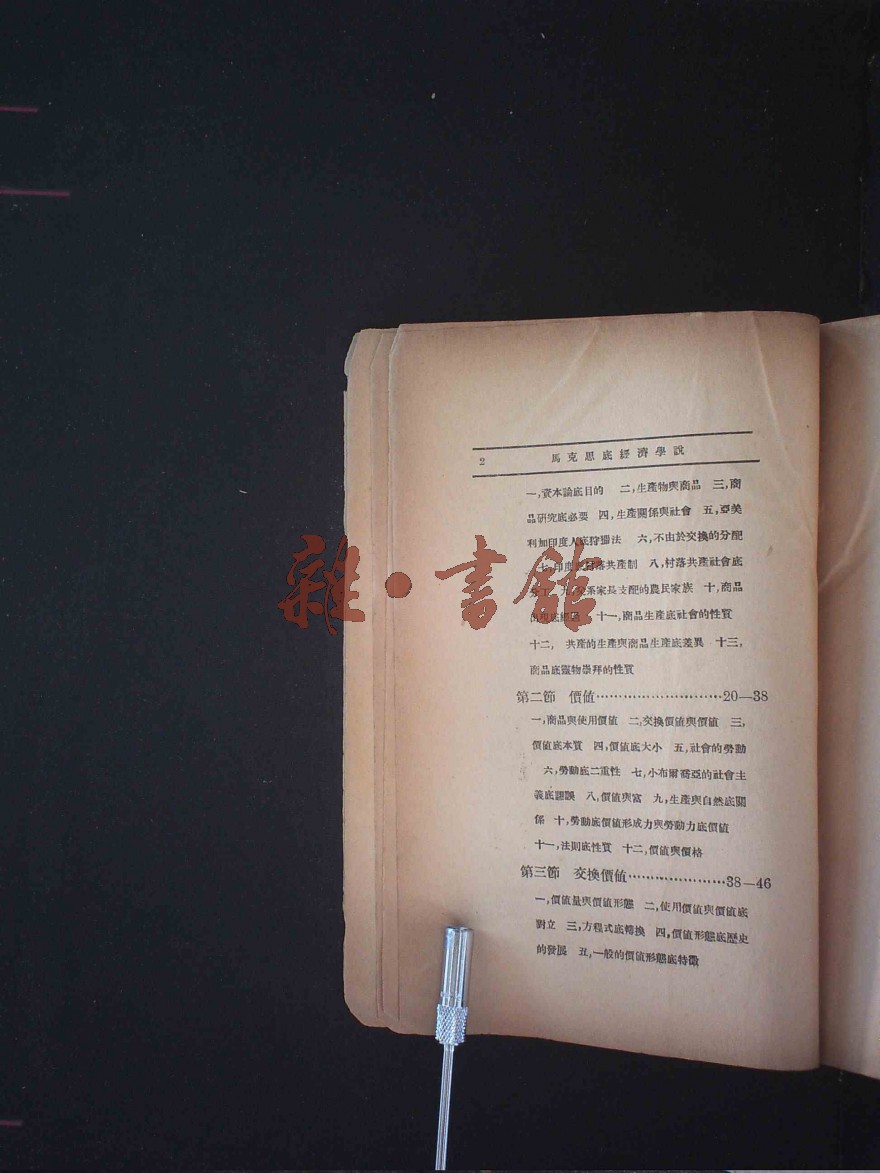 2 馬克思底經濟學說
一，資本論底目的 二，生產物與商品 三，商
品研究底必要 四，生產關係與社會 五，亞美
利加印度人底狩獵法 六，不由於交換的分配
七，印度底村落共產制 八，村落共產社會底
九，父系家長支配的農民家族 十，商品
出現底經過 十一，商品生產底社會的性質
十二， 共產的生產與商品生產底差異 十三，
商品底靈物崇拜的性質
第二節 價値……………………20—38
一，商品與使用價値 二，交換價値與價値 三，
價値底本質 四，價値底大小 五，社會的勞動
六，勞動底二重性 七，小布爾喬亞的社會主
義底謬誤 八，價値與富 九，生產與自然底關
係 十，勞動底價値形成力與勞動力底價値
十一，法則底性質 十二，價値與價格
第三節 交換價値…………………38—46
一，價値量與價値形態 二，使用價値與價値底
對立 三，方程式底轉換 四，價値形態底歷史
的發展 五，一般的價値形態底特徵
雜·書館